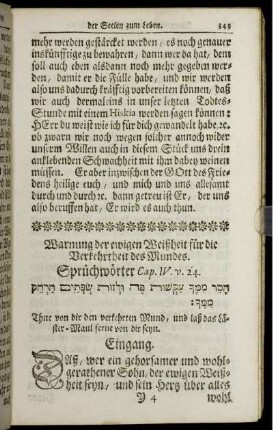 der Seelen zum Leben. 349
mehr werden gestärcket werden, es noch genauer
inskünfftige zu bewahren, dann wer da hat, dem
soll auch eben alsdann noch mehr gegeben wer-
den, damit er die Fülle habe, und wir werden
also uns dadurch kräfftig vorbereiten können, daß
wir auch dermaleins in unser letzten Todtes-
Stunde mit einem Hiskia werden sagen können:
HErr du weist wie ich für dich gewandelt habe. ꝛc.
ob zwarn wir noch wegen solcher annoch wider
unsern Willen auch in diesem Stück uns drein
anklebenden Schwachheit mit ihm dabey weinen
müssen. Er aber inzwischen der GOtt des Frie-
dens heilige euch, und mich und uns allesamt
durch und durch ꝛc. dann getreu ist Er, der uns
also beruffen hat, Er wird es auch thun.
Warnung der ewigen Weißheit für die
Verkehrtheit des Mundes.
Sprüchwörter Cap. IV. v. 24.
הָסֵר מִמְּךָ עִקְּשׁוּת פֶּה וּלְזוּת שְׂפָתַיִם הַרְחֵק
מִמֶּךָּ:
Thue von dir den verkehrten Mund, und laß das Lä-
ster-Maul ferne von dir seyn.
Eingang.
Daß, wer ein gehorsamer und wohl-
gerathener Sohn, der ewigen Weiß-
heit seyn, und sein Hertz über alles
Y 4 wohl